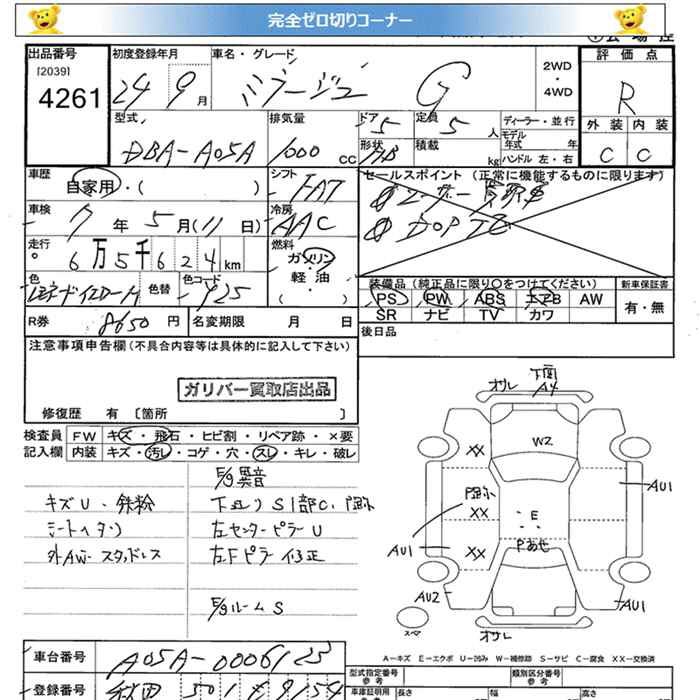 完全ゼロ切りコーナー
出品番号
[2039]
4261
初度登録年月
24 9 月
車名・グレード
ミラージュ G
2WD
・
4WD
評 価 点
R
外 装 内 装
C C
型式
DBA-A05A
排気量
1000 cc
ドア 5
定員 5 人
形状 HB
積載 kg
ディーラー・並 行
モデル
年式 年
ハンドル 左・右
車歴
自家用・( )
シフト
FAT
セールスポイント (正常に機能するものに限ります)
① ワンオーナー 買取車
① DOP TV
車検
7 年 5 月 (11 日)
冷房
AAC
走行
6 万 5 千 6 2 4 km
燃料
ガソリン
・
軽 油
( ・ )
色
レモネードイエローM
色替
色コード
Y25
装備品 (純正品に限り○をつけてください)
PS PW ABS エアB AW
SR ナビ TV カワ
新車保証書
有・無
R券 8650 円
名変期限 月 日
後日品
注意事項申告欄 (不具合内容等は具体的に記入して下さい)
ガリバー買取店出品
修復歴 有 〔箇所 〕
検査員
記入欄
FW キズ・飛石・ヒビ割・リペア跡・×要
内装 キズ・汚レ・コゲ・穴・スレ・キレ・破レ
E/g異音
キズU・鉄粉
下廻りS1部C、凹
シートヘタリ
左センターピラーU
外AW・スタッドレス
左Fピラ修正
E/gルームS
下凹
オサレ
A4
W2
XX
AU1
凹
XX
E
AU1
XX
Pあせ
AU2
AU1
スペア
オサレ
A-キズ E-エクボ U-凹み W-補修跡 S-サビ C-腐食 XX-交換済
車台番号
A05A-0006125
型式指定番号
参考
類別区分番号
参考
登録番号
秋田 501
車庫証明用
参考
長さ
幅
高さ